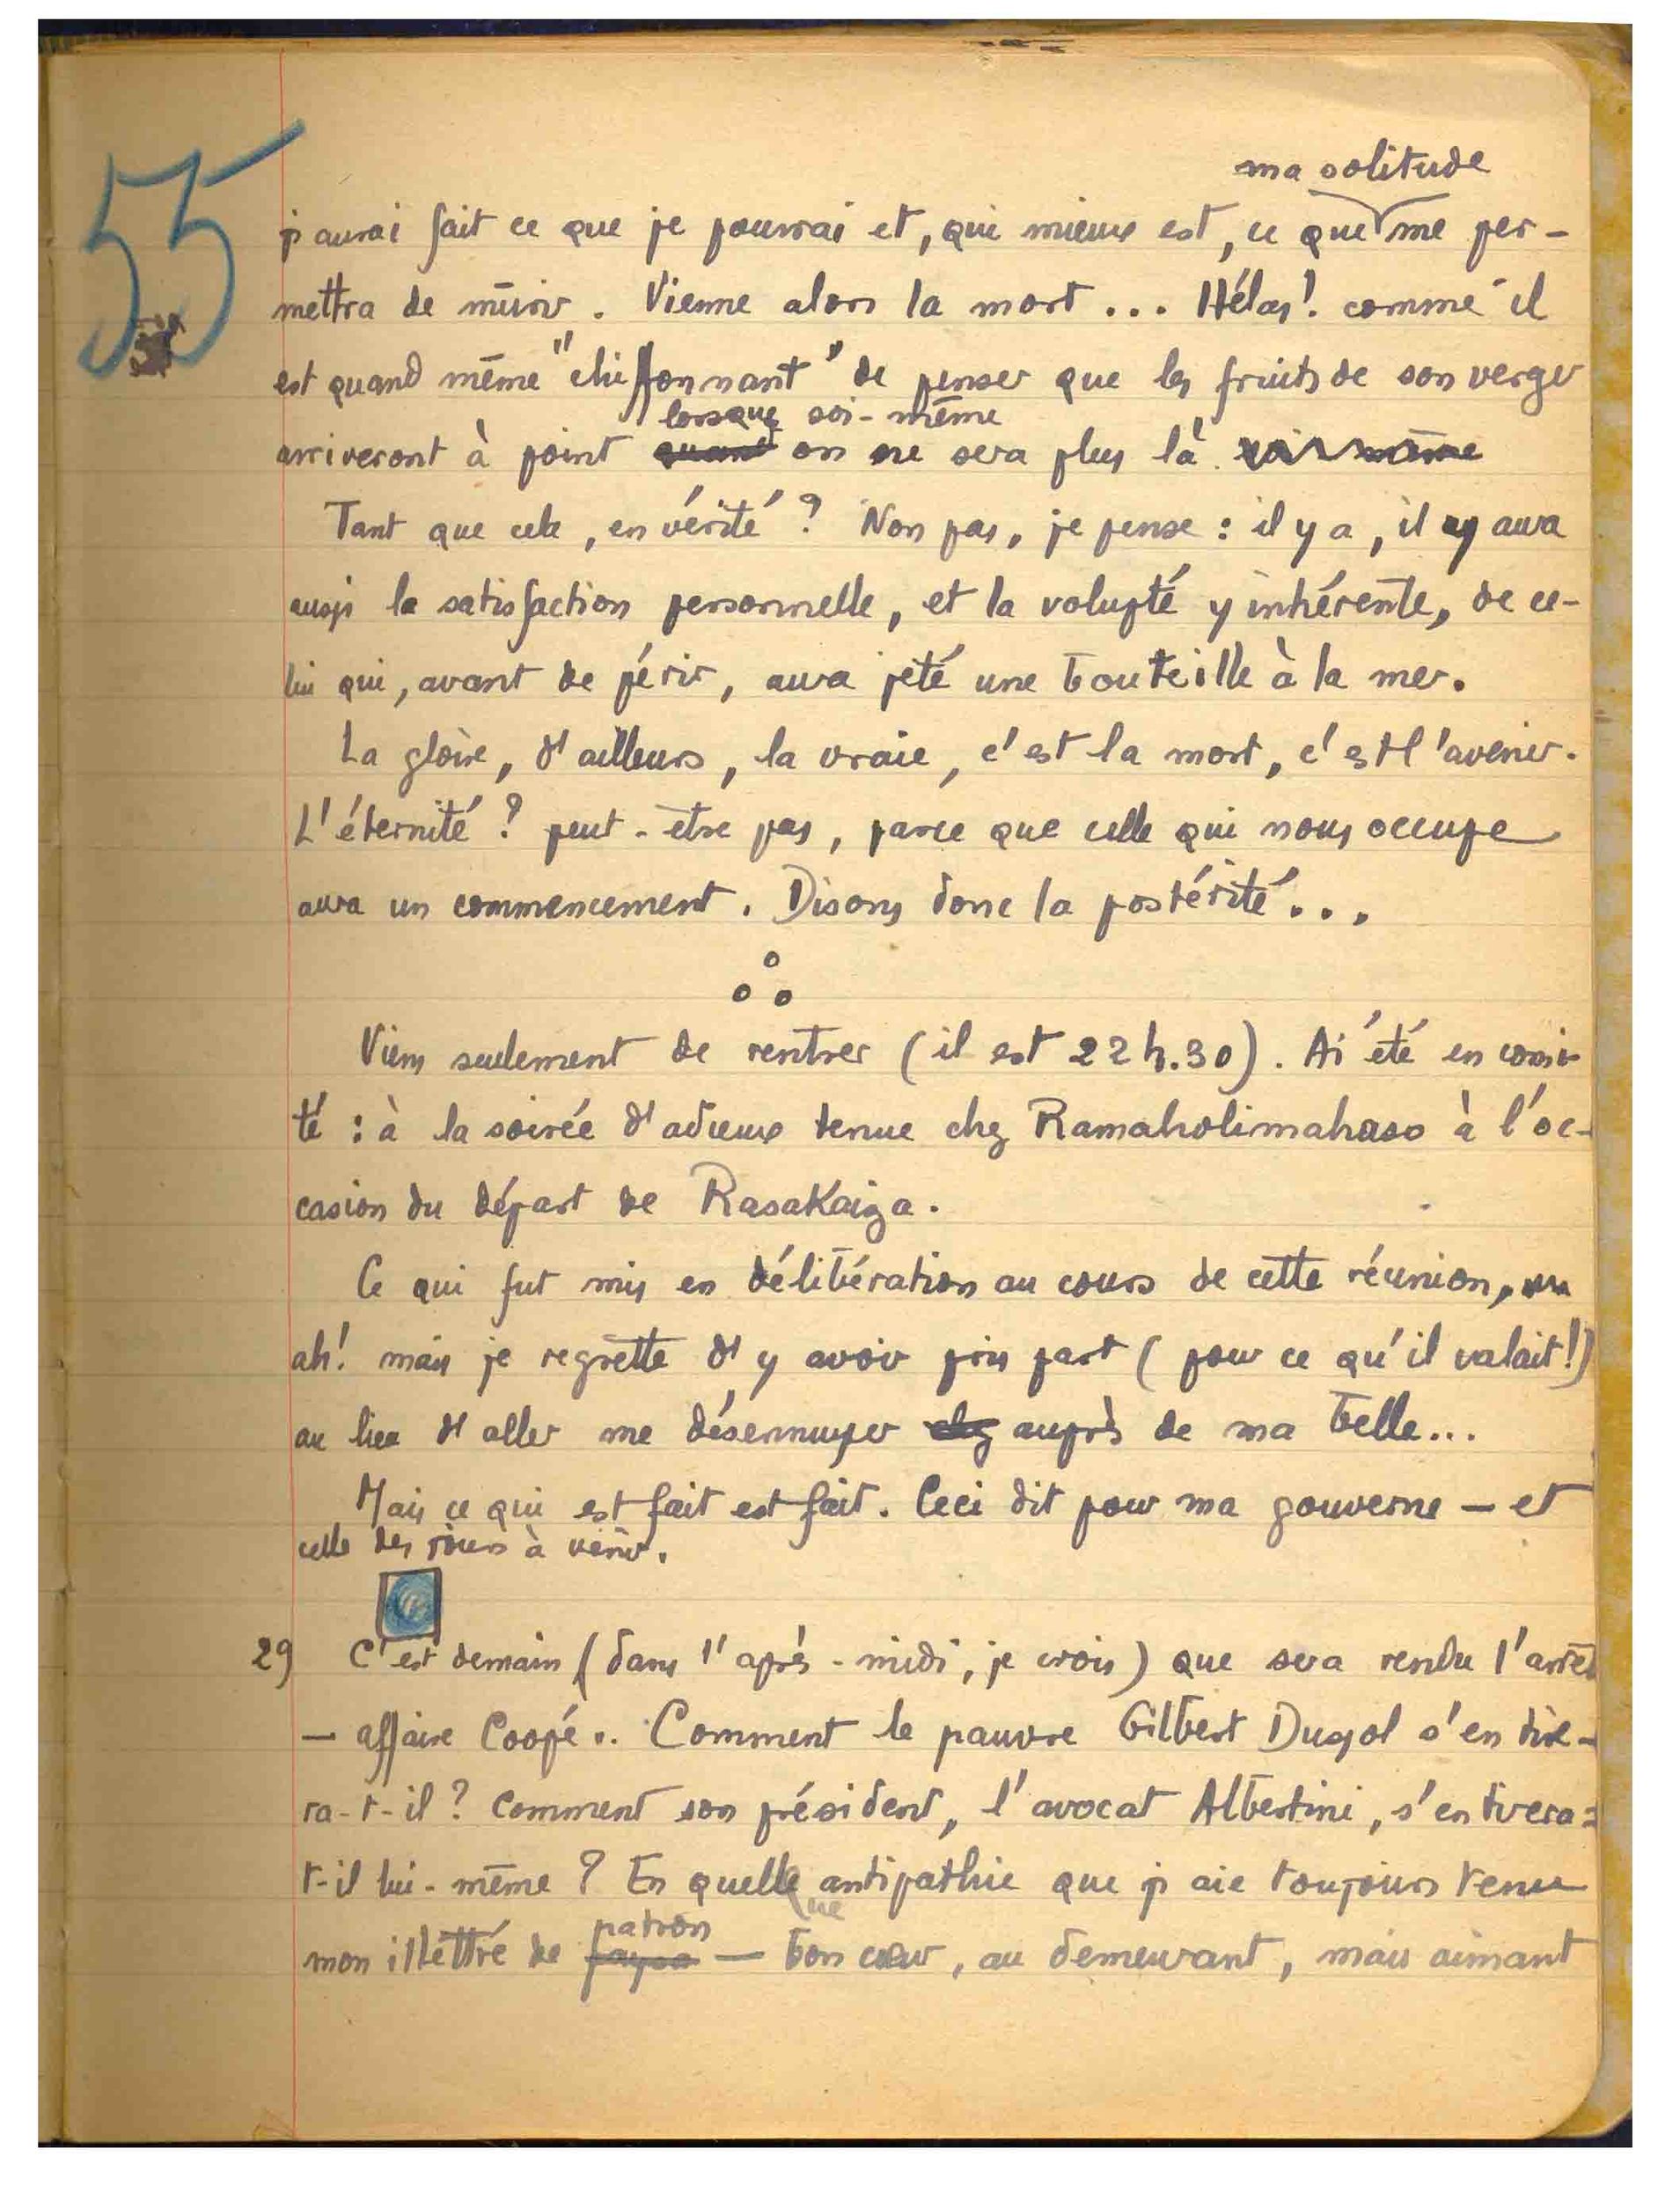 55
ma solitude
j'aurai fait ce que je pourrai et, qui mieux est, ce que me per-
mettra de mûrir. Vienne alors la mort... Hélas! comme il
est quand même "chiffonnant" de penser que les fruits de son verger
lorsque soi-même
arriveront à point quand on ne sera plus là soi-même
Tant que cela, en vérité? Non pas, je pense: il y a, il y aura
aussi la satisfaction personnelle, et la volupté y inhérente, de ce-
lui qui, avant de périr, aura jeté une bouteille à la mer.
La gloire, d'ailleurs, la vraie, c'est la mort, c'est l'avenir.
L'éternité? peut-être pas, parce que celle qui nous occupe
aura un commencement. Disons donc la postérité...
Viens seulement de rentrer (il est 22h.30). Ai été en comi-
té: à la soirée d'adieux tenue chez Ramaholimahaso à l'oc-
casion du départ de RasaKaiza.
Ce qui fut mis en délibération au cours de cette réunion,
ah! mais je regrette d'y avoir pris part (pour ce qu'il valait!)
au lieu d'aller me désennuyer chez auprès de ma belle...
Mais ce qui est fait est fait. Ceci dit pour ma gouverne — et
celle des jours à venir.
29 C'est demain (dans l'après-midi, je crois) que sera rendu l'arrêt
— affaire Coopé.. Comment le pauvre Gilbert Dusjol s'en tire-
ra-t-il? Comment son président, l'avocat Albertini, s'en tirera-
t-il lui-même? En quelle antipathie que j'aie toujours tenu
que
patron
mon illettré de — bon cœur, au demeurant, mais aimant